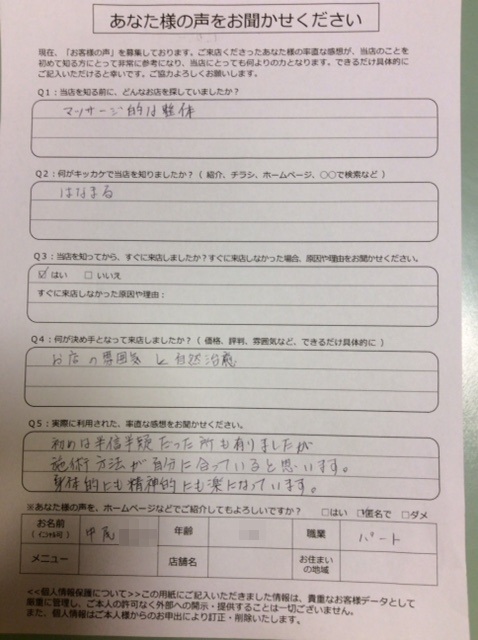 あなた様の声をお聞かせください
現在、「お客様の声」を募集しております。ご来店くださったあなた様の率直な感想が、当店のことを
初めて知る方にとって非常に参考になり、当店にとっても何よりの力となります。できるだけ具体的に
ご記入いただけると幸いです。ご協力よろしくお願いします。
Q1：当店を知る前に、どんなお店を探していましたか？
マッサージ的な整体
Q2：何がキッカケで当店を知りましたか？（ 紹介、チラシ、ホームページ、○○で検索など ）
はなまる
Q3：当店を知ってから、すぐに来店しましたか？すぐに来店しなかった場合、原因や理由をお聞かせください。
☑ はい □ いいえ
すぐに来店しなかった原因や理由：
Q4：何が決め手となって来店しましたか？（ 価格、評判、雰囲気など、できるだけ具体的に ）
お店の雰囲気と自然治癒
Q5：実際に利用された、率直な感想をお聞かせください。
初めは半信半疑だった所も有りましたが
施術方法が自分に合っていると思います。
身体的にも精神的にも楽になっています。
※あなた様の声を、ホームページなどでご紹介してもよろしいですか？ □はい ☑匿名で □ダメ
お名前 中尾 年齢 職業 パート
（ｲﾆｼｬﾙ可）
メニュー 店舗名 お住まいの地域
<<個人情報保護について>>この用紙にご記入いただきました情報は、貴重なお客様データとして
厳重に管理し、ご本人の許可なく外部への開示・提供することは一切ございません。
また、個人情報はご本人様からのお申出により訂正・削除いたします。